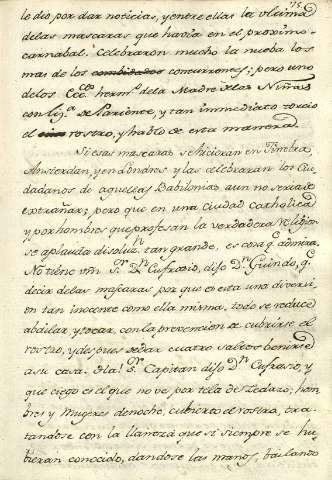 75
lo dio por dar noticias, y entre ellas la vltima
de las mascaras que havia en el proximo
carnabal. Celebraron mucho la nueba los
mas de los concurrentes; pero uno
de los herm.s de la Madre de las Niñas
con de Pariente, y tan immediato torcio
el rostro, y hablo de esta manera.
Si esas mascaras se hicieran en Ginebra
Amsterdan, y en Londres y las celebraran los Ciu
dadanos de aquellas Babilonias aun no seria de
extrañar; pero que en una Ciudad Catholica
y por hombres que profesan la verdadera Religion
se aplauda disoluz.n tan grande, es cosa q.e admira.
No tiene vm S.r D.n Eufrasio, dijo D.n Guindo, q.e
decir de las mascaras por que es esta una diversi
on tan inocente como ella misma, todo se reduce
a bailar, y tocar, con la prevencion de cubrirse el
rostro, y despues de dar cuatro saltos bolverse
a su casa. Ha! S.r Capitan dijo D.n Eufrasio, y
que ciego es el que no ve por tela de Zedazo; hom
bres y Mugeres de noche, cubierto el rostro, tra
tandose con la llaneza que si siempre se hu
bieran conocido, dandose las manos, bailando